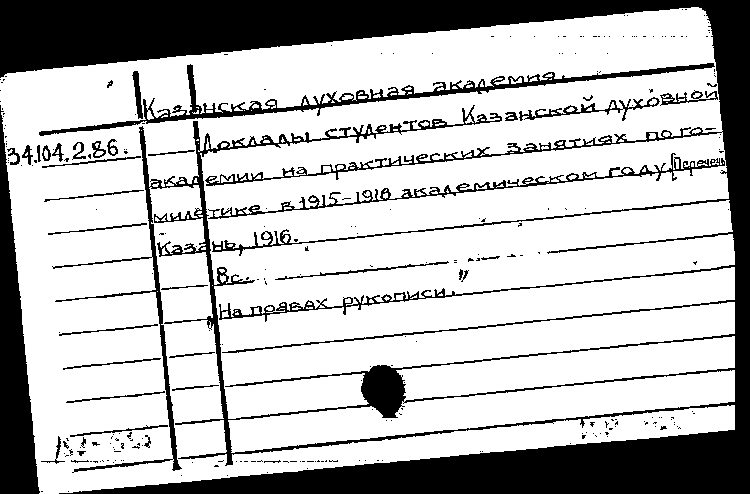 Казанская духовная академия.
34.104.2.86.
Доклады студентов Казанской духовной
академии на практических занятиях по го-
милетике в 1915-1916 академическом году. [Перечень
Казань, 1916.
8с.
"На правах рукописи."